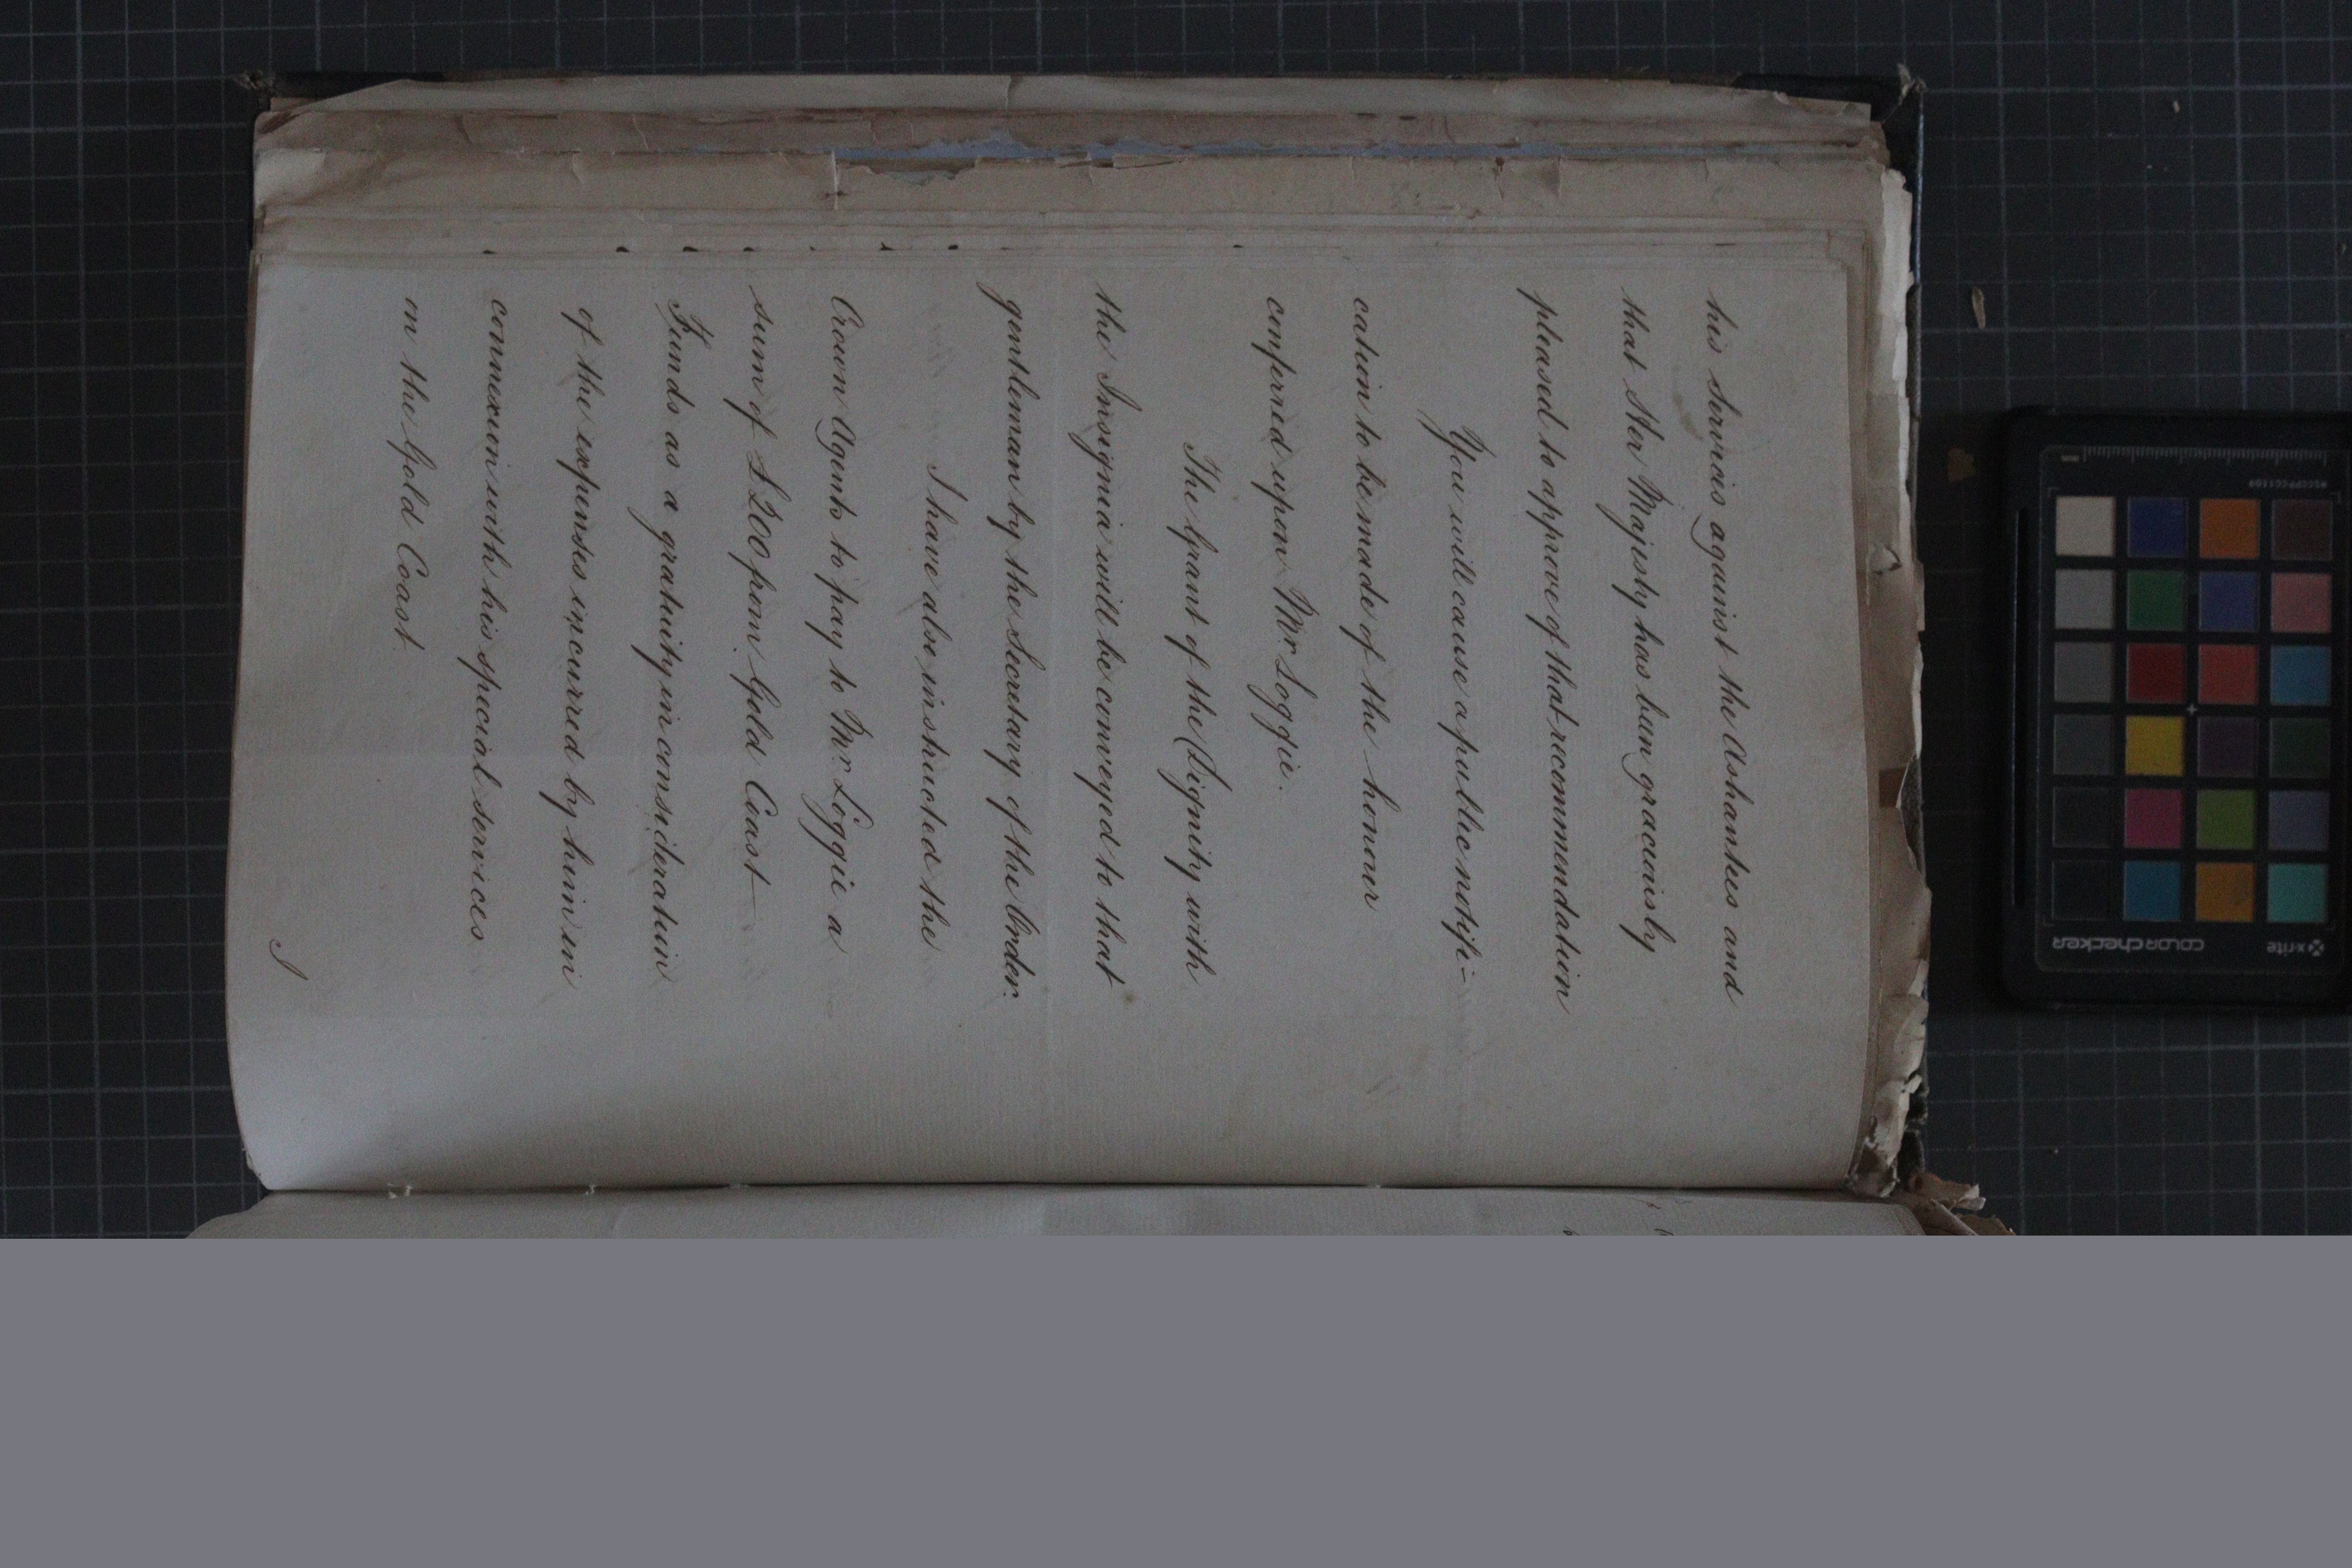 his services against the Ashantees and
that Her Majesty has been graciously
pleased to approve of that recommendation
You will cause a public notifi-
cation to be made of the honour
conferred upon Mr. Loggie.
The Grant of the Dignity with
the Insignia will be conveyed to that
gentleman by the Secretary of the Order.
I have also instructed the
Crown Agents to pay to Mr. Loggie a
sum of £200 from Gold Coast
Funds as a gratuity in consideration
of the expenses incurred by him in
connexion with his special services
on the Gold Coast.
I
colorchecker
x-rite